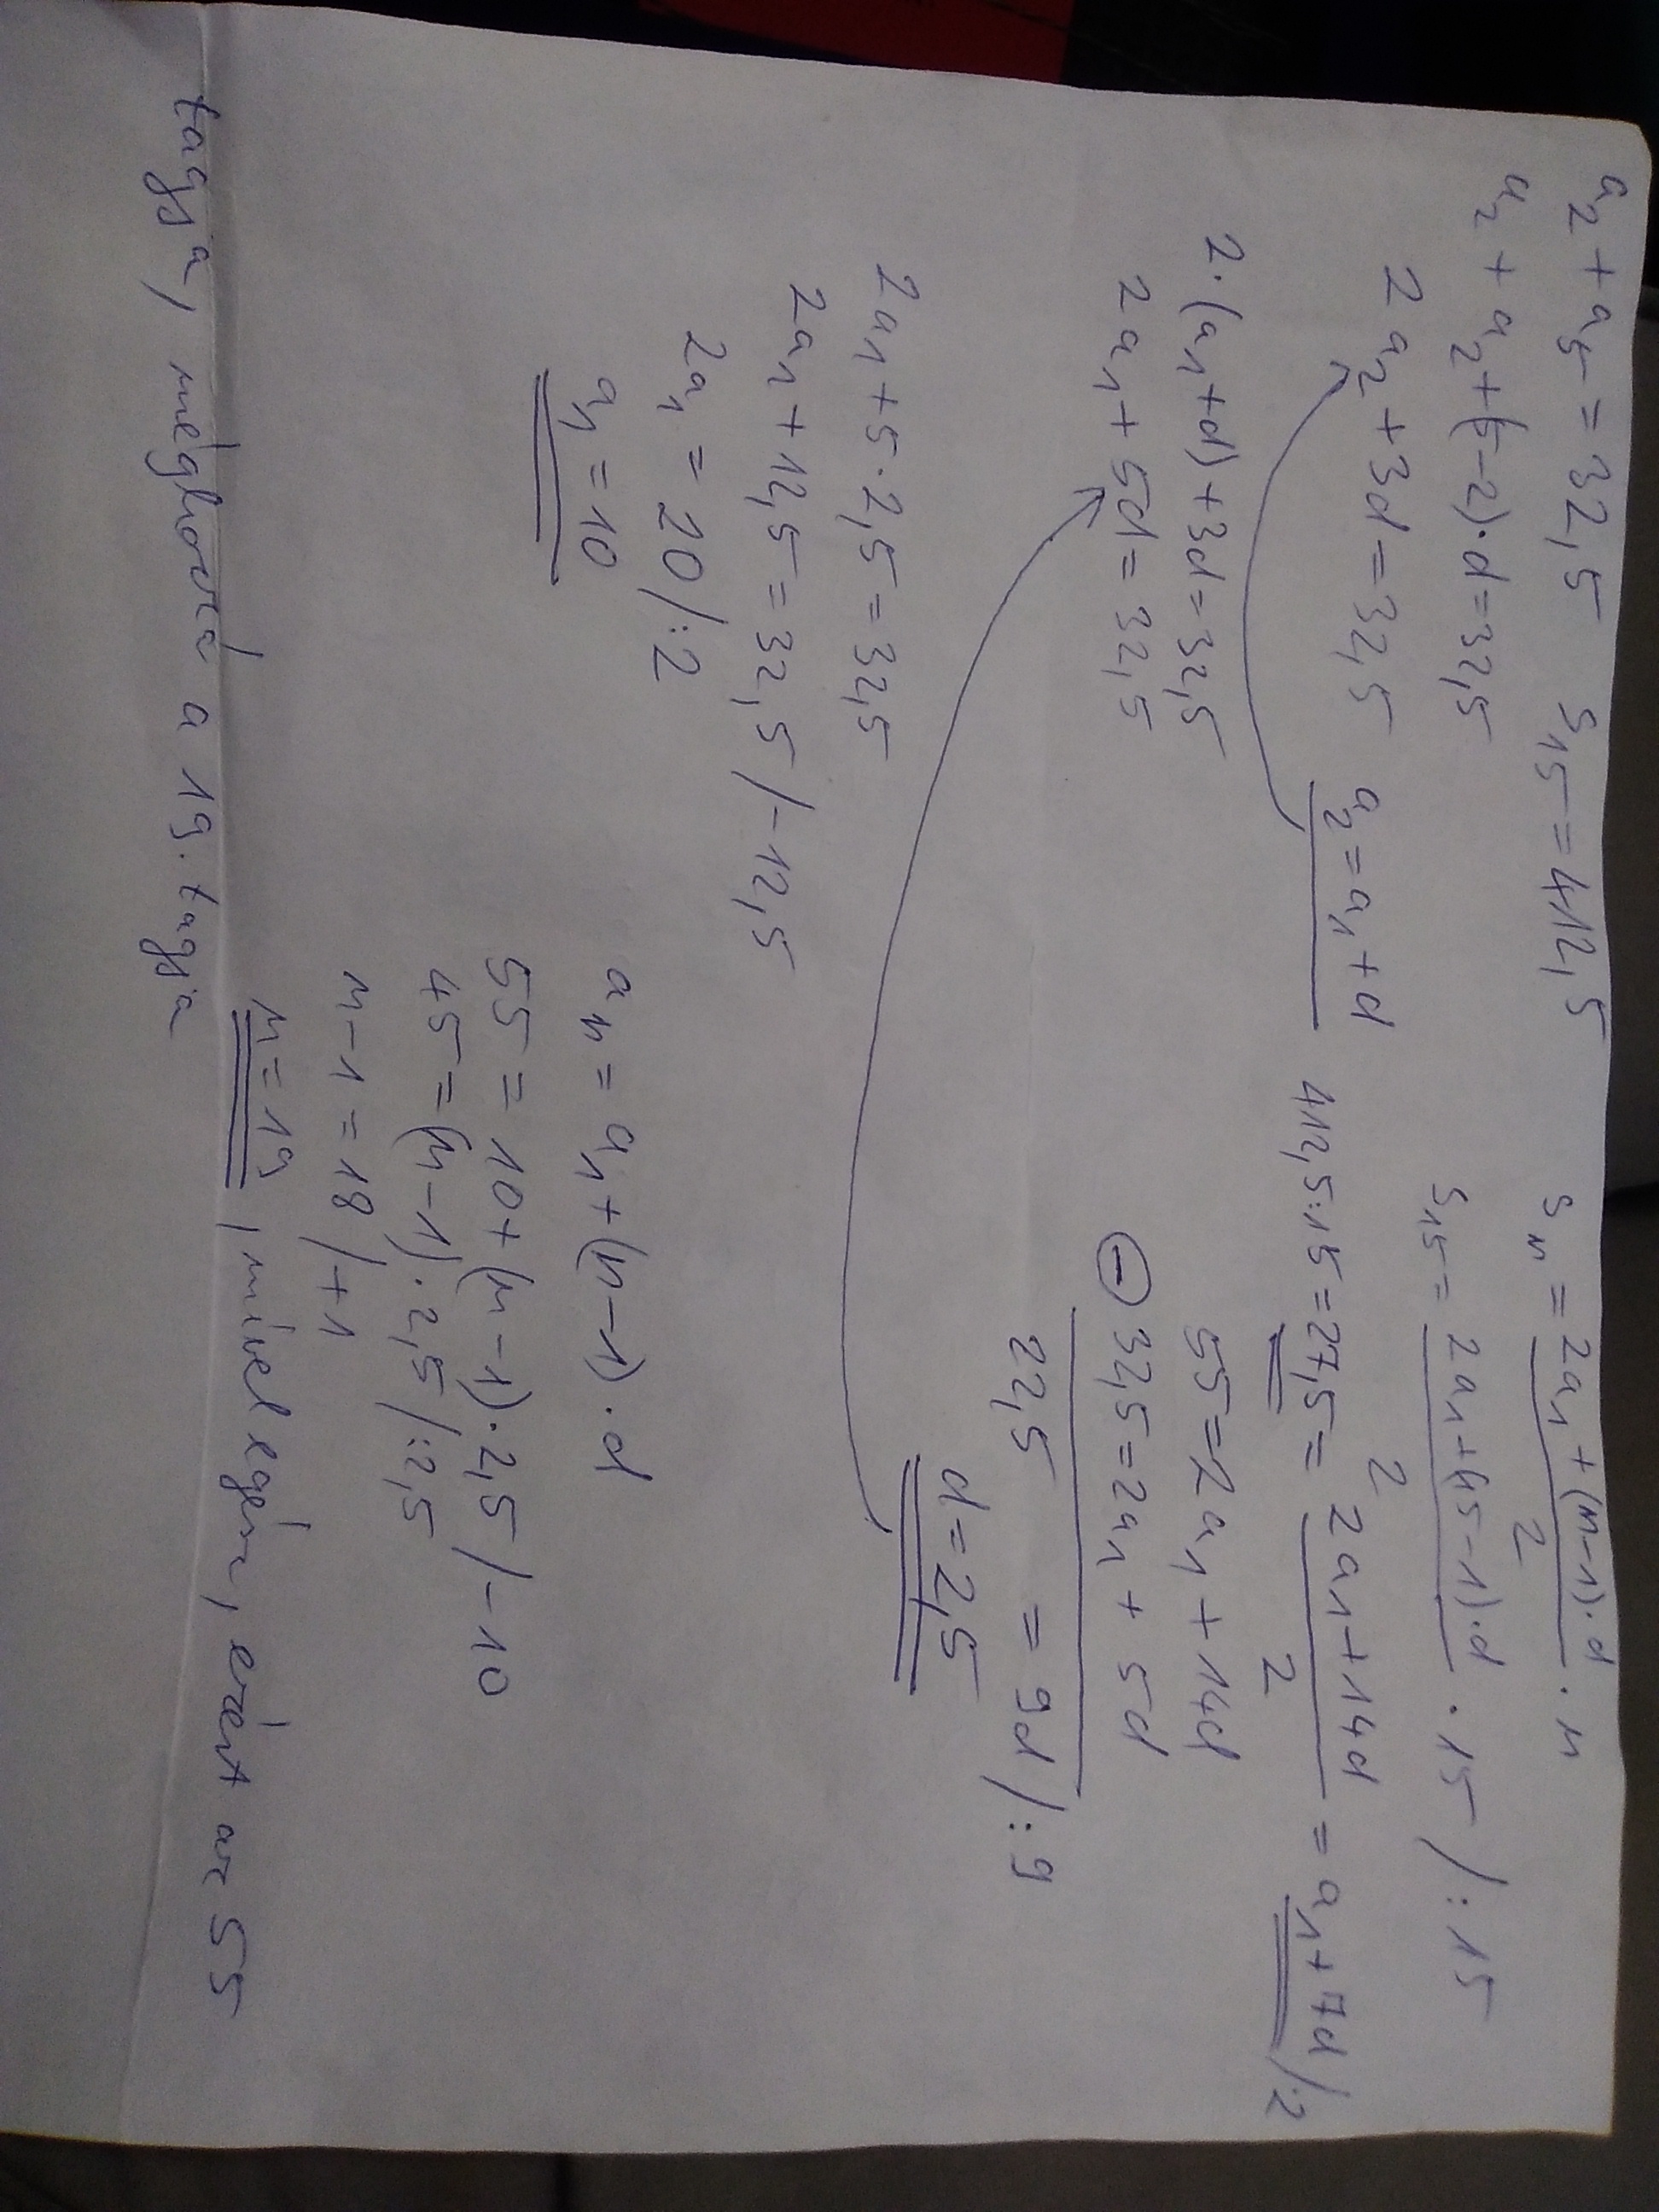 a₂ + a₅ = 32,5   S₁₅ = 412,5
a₂ + a₂ + (5-2)·d = 32,5
2a₂ + 3d = 32,5   a₂ = a₁ + d
2·(a₁+d) + 3d = 32,5
2a₁ + 5d = 32,5
2a₁ + 5·2,5 = 32,5
2a₁ + 12,5 = 32,5 /-12,5
2a₁ = 20 /:2
a₁ = 10
Sₙ = (2a₁ + (n-1)·d)/2 · n
S₁₅ = (2a₁ + (15-1)·d)/2 · 15 /:15
412,5:15 = 27,5 = (2a₁ + 14d)/2 = a₁ + 7d /·2
55 = 2a₁ + 14d
⊖ 32,5 = 2a₁ + 5d
22,5 = 9d /:9
d = 2,5
aₙ = a₁ + (n-1)·d
55 = 10 + (n-1)·2,5 /-10
45 = (n-1)·2,5 /:2,5
n-1 = 18 /+1
n = 19, mivel egész, ezért az 55
tagja, méghozzá a 19. tagja